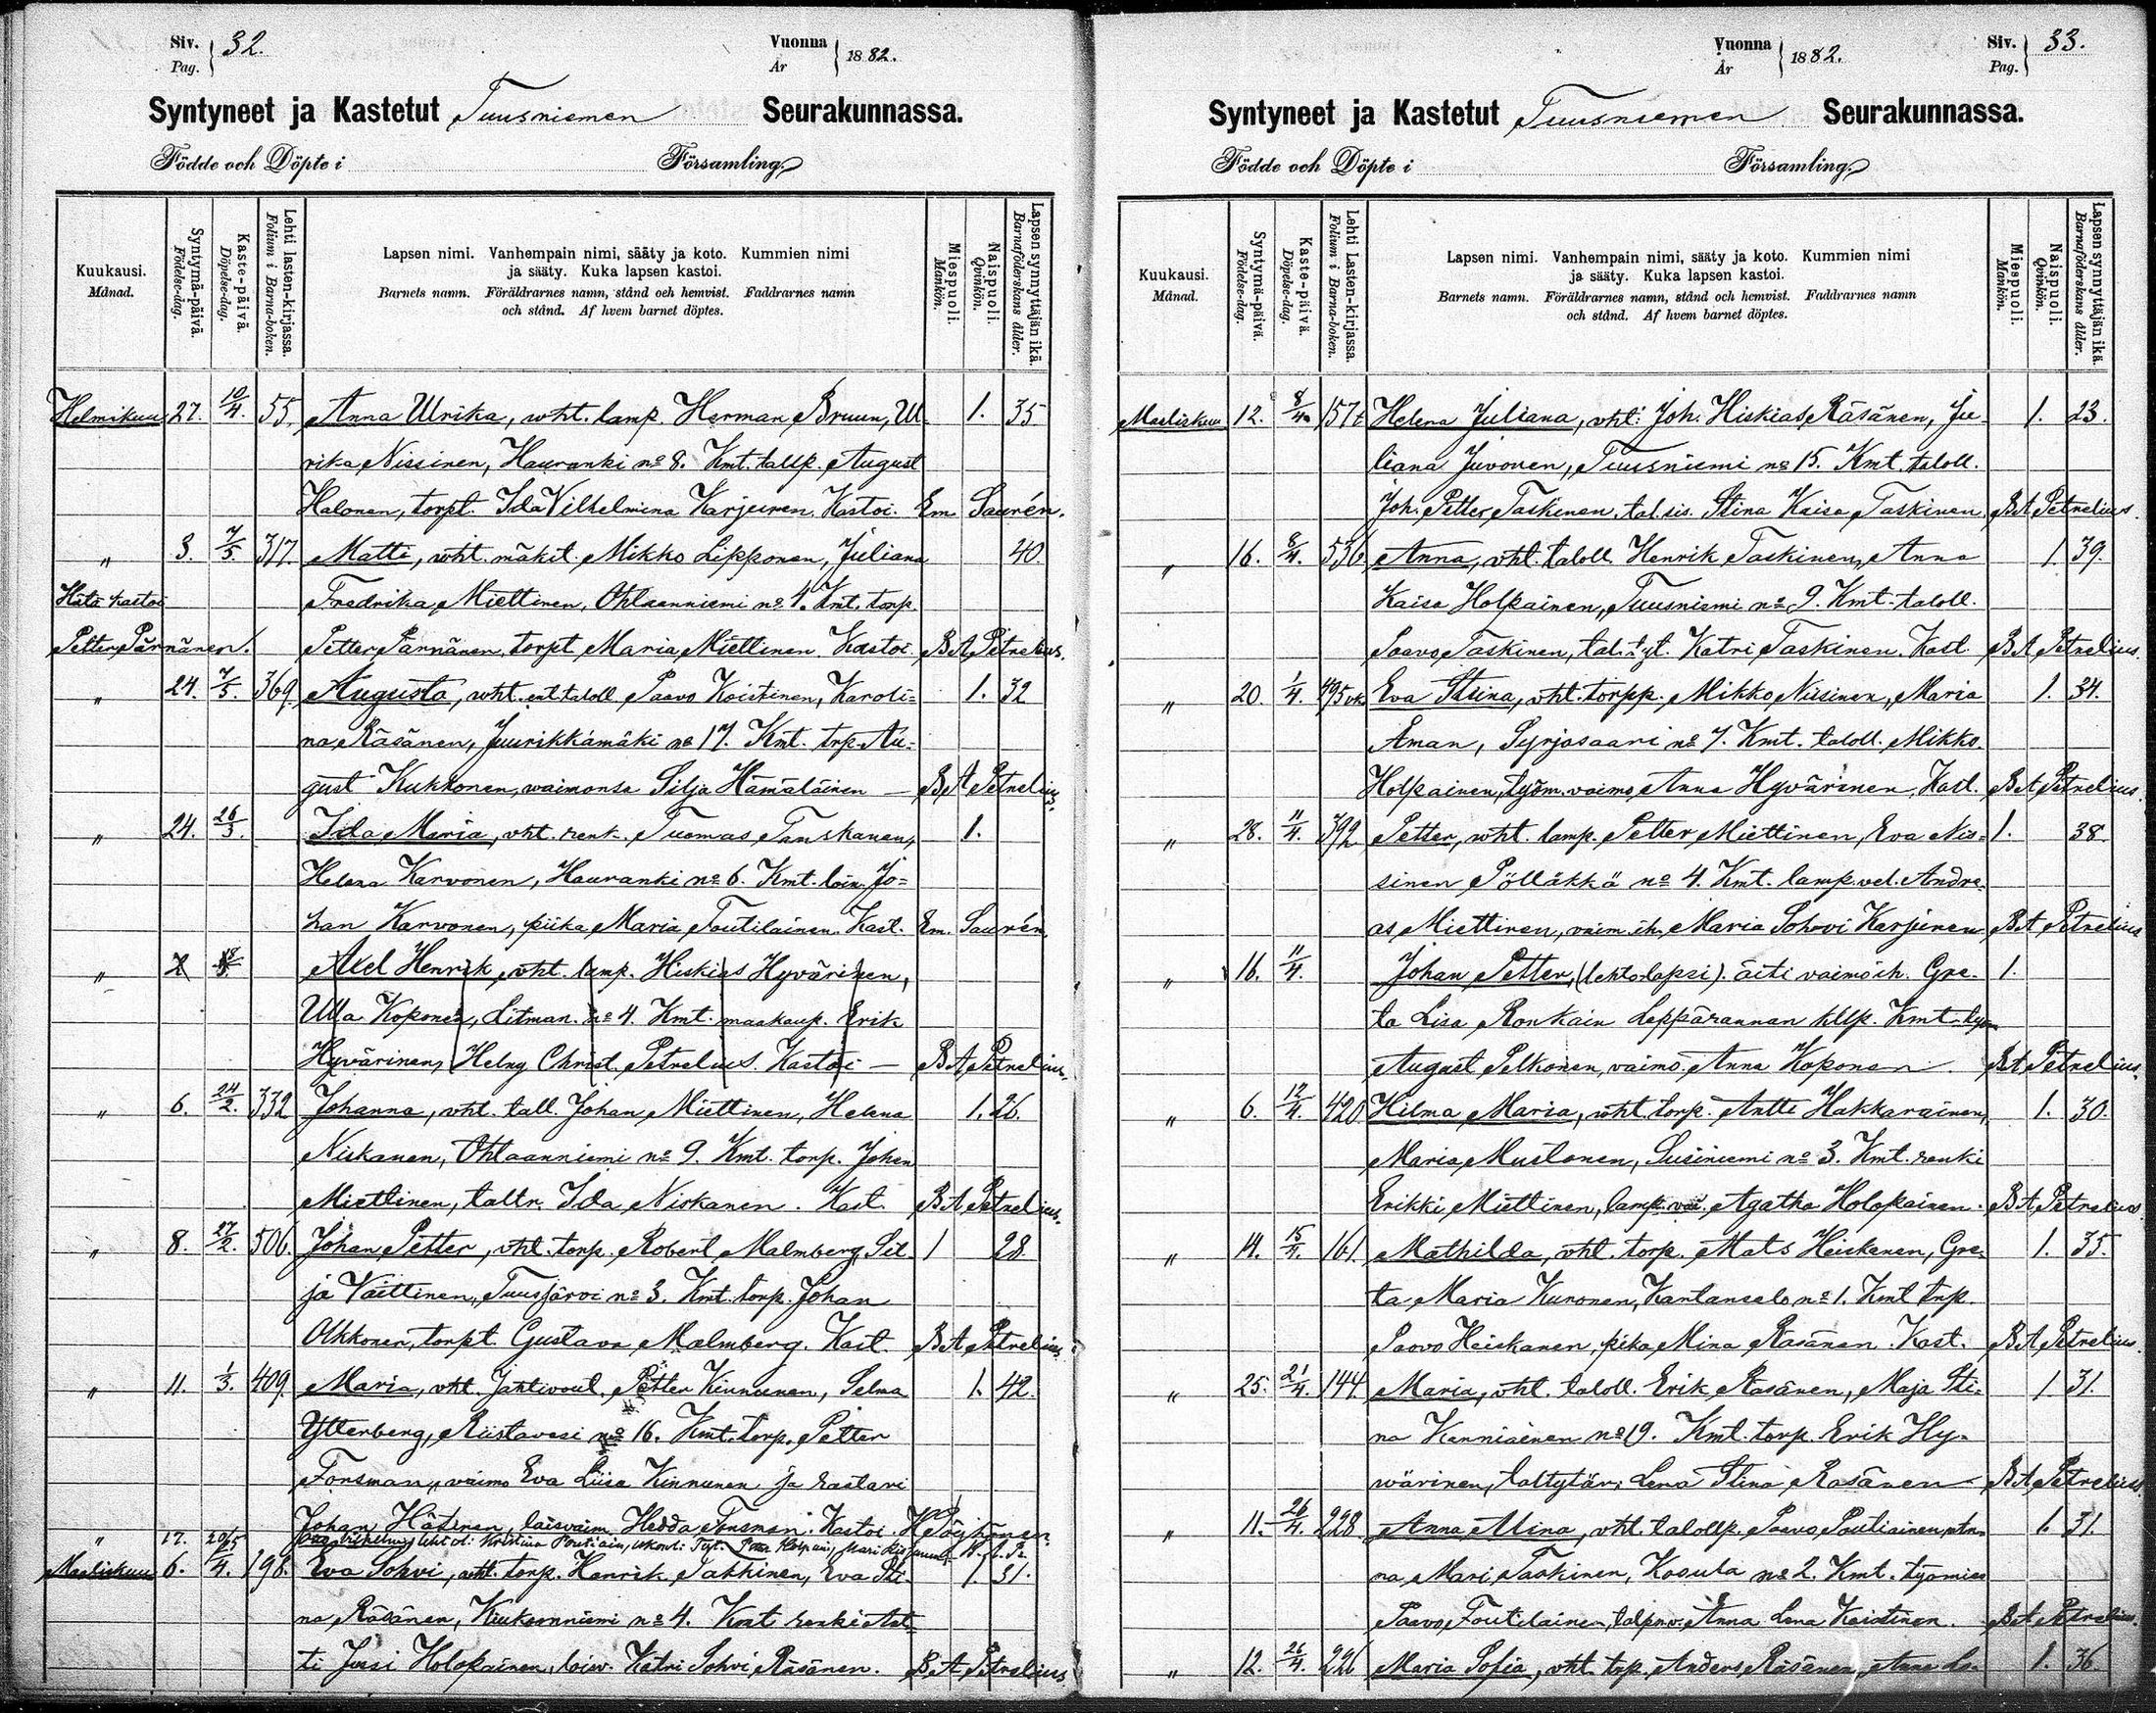 Siv. Pag. } 32.
Vuonna År } 1882.
Syntyneet ja Kastetut Tuusniemen Seurakunnassa.
Födde och Döpte i Församling.
Kuukausi. Månad.
Syntymä-päivä. Födelse-dag.
Kaste-päivä. Döpelse-dag.
Lehti lasten-kirjassa. Folium i Barna-boken.
Lapsen nimi. Vanhempain nimi, sääty ja koto. Kummien nimi
ja sääty. Kuka lapsen kastoi.
Barnets namn. Föräldrarnes namn, stånd och hemvist. Faddrarnes namn
och stånd. Af hvem barnet döptes.
Miespuoli. Mankön.
Naispuoli. Qvinkön.
Lapsen synnyttäjän ikä. Barnaföderskans ålder.
Helmikuu 27. 10/4. 55. Anna Ulrika, vht. lamp. Herman Bruun, Ul- 1. 35.
rika Nissinen, Hauranki no 8. Kmt. tallp. August
Halonen, torpt. Ida Vilhelmina Karjunen. Kastoi. Em. Saurén.
" 3. 7/5. 317. Matti, vht. mäkit. Mikko Lipponen, Juliana 40.
Hätä kastoi Fredrika Miettinen, Ohtaanniemi no 4. Kmt. torp.
Petter Pärnänen. Petter Pärnänen, torpt. Maria Miettinen. Kastoi. B A Petrelius.
" 24. 7/5. 369. Augusta, vht. ent. taloll. Paavo Koistinen, Karoli= 1. 32
na Räsänen, Juurikkamäki no 17. Kmt. trp. Au=
gust Kukkonen, waimonsa Silja Hämäläinen — B A Petrelius.
" 24. 26/3. Ida Maria, vht. renk. Tuomas Tanskanen, 1.
Helena Karvonen, Hauranki no 6. Kmt. loin. Jo=
han Karvonen, piika Maria Toutilainen. Kast. Em. Saurén.
" Axel Henrik, vht. lamp. Hiskias Hyvärinen,
Ulla Koponen, Litman. no 4. Kmt. maakaup. Erik
Hyvärinen, Helny Christ. Petrelius. Kastoi — B A Petrelius.
" 6. 24/2. 332 Johanna, vht. tall. Johan Miettinen, Helena 1. 26.
Niskanen, Ohtaanniemi no 9. Kmt. torp. Johan
Miettinen, taltr. Ida Niskanen. Kast. B A Petrelius.
" 8. 27/2. 506. Johan Petter, vht. torp. Robert Malmberg, Sil- 1 28.
ja Väittinen, Tuusjärvi no 3. Kmt. torp. Johan
Okkonen, torpt. Gustava Malmberg. Kast. B A Petrelius.
" 11. 1/3. 409. Maria, vht. Jahtivout. Petter Kinnunen, Selma 1. 42.
Ytterberg, Riistavesi no 16. Kmt. torp. Petter
Forsman, vaimo Eva Liisa Kinnunen ja rastari
Johan Hätinen, Hedda Forsman. Kastoi. H Pöyhönen.
" 17. 20/5 Vilhelmina
Maaliskuu 6. /4. 198. Eva Sohvi, vht. torp. Henrik Takkinen, Eva Sti- 1. 31.
na Räsänen, Kiukoonniemi no 4. Kmt renki Ant=
ti Jussi Holopainen, loisv. Katri Sohvi Räsänen. B A Petrelius
Vuonna År } 1882.
Siv. Pag. } 33.
Syntyneet ja Kastetut Tuusniemen Seurakunnassa.
Födde och Döpte i Församling.
Kuukausi. Månad.
Syntymä-päivä. Födelse-dag.
Kaste-päivä. Döpelse-dag.
Lehti Lasten-kirjassa. Folium i Barna-boken.
Lapsen nimi. Vanhempain nimi, sääty ja koto. Kummien nimi
ja sääty. Kuka lapsen kastoi.
Barnets namn. Föräldrarnes namn, stånd och hemvist. Faddrarnes namn
och stånd. Af hvem barnet döptes.
Miespuoli. Mankön.
Naispuoli. Qvinkön.
Lapsen synnyttäjän ikä. Barnaföderskans ålder.
Maaliskuu 12. 8/4 157 Helena Juliana, vht. Joh. Hiskias Räsänen, Ju- 1. 23.
liana Juvonen, Tuusniemi no 15. Kmt. taloll.
Joh. Petter Taskinen, tal. sis. Stina Kaisa Taskinen. B A Petrelius.
" 16. 8/4. 536. Anna, vht. taloll. Henrik Taskinen, Anna 1. 39.
Kaisa Holpainen, Tuusniemi no 9. Kmt. taloll.
Paavo Taskinen, tal. tyt. Katri Taskinen. Kast. B A Petrelius.
" 20. 1/4. 495 Eva Stiina, vht. torpp. Mikko Niisinen, Maria 1. 34.
Aman, Syrjäsaari no 7. Kmt. taloll. Mikko
Holpainen, työm. vaimo Anna Hyvärinen. Kast. B A Petrelius.
" 28. 11/4. 392 Petter, vht. lamp. Petter Miettinen, Eva Nis= 1. 38.
sinen Pölläkkä no 4. Kmt. lamp. vel. Andre-
as Miettinen, vaim. ih. Maria Sohvi Karjunen B A Petrelius
" 16. 11/4. Johan Petter, (lehto-lapsi). äiti vaimo ih. Gre- 1.
ta Lisa Ronkain Leppärannan kllp. Kmt.
August Pelkonen, vaimo Anna Koponen. B A Petrelius.
" 6. 12/4. 420. Hilma Maria, vht. torp. Antti Hakkarainen, 1. 30.
Maria Mustonen, Susiniemi no 3. Kmt. renki
Erikki Miettinen, lamp. vai. Agatha Holopainen. B A Petrelius
" 14. 15/4. 161. Mathilda, vht. torp. Mats Heiskanen, Gre- 1. 35.
ta Maria Kuronen, Kantanselo no 1. Kmt trp.
Paavo Heiskanen, piika Mina Räsänen. Kast. B A Petrelius.
" 25. 21/4. 144 Maria, vht. taloll. Erik Räsänen, Maja Sti- 1 31.
na Kanniainen no 19. Kmt. torp. Erik Hy-
wärinen, taltytär Lena Stina Räsänen — B A Petrelius
" 11. 26/4. 228. Anna Mina, vht. talollp. Paavo Poutiainen, 1. 31.
na Mari Taskinen, Kosula no 2. Kmt. työmies
Paavo Toutilainen, Anna Lena Koistinen. B A Petrelius.
" 12. 26/4. 226 Maria Sofia, vht. trp. Anders Räsänen, Anna Lo- 1. 36.